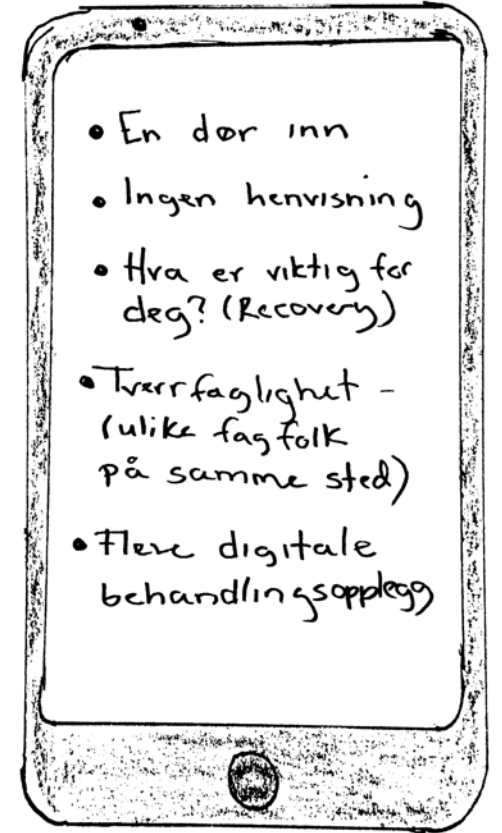 • En dør inn
• Ingen henvisning
• Hva er viktig for
deg? (Recovery)
• Tverrfaglighet -
(ulike fagfolk
på samme sted)
• Flere digitale
behandlingsopplegg